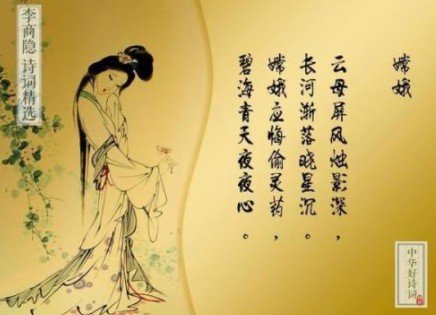 李商隐 诗词精选
嫦娥
云母屏风烛影深，
长河渐落晓星沉。
嫦娥应悔偷灵药，
碧海青天夜夜心。
中华好诗词